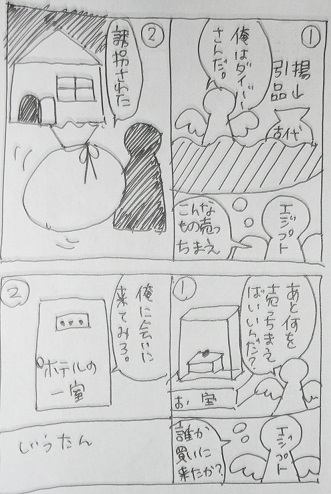 ①
揚山
引品
古代
俺はダイバー
さんだ。
エジプト
こんな
もの売っ
ちまえ
②
誘拐された
①
あと何を
売っちまえ
ばいいんだ?
お宝
エジプト
誰か
買いに
来たか?
②
俺に会いに
来てみろ。
ホテルの
一室
じうたん